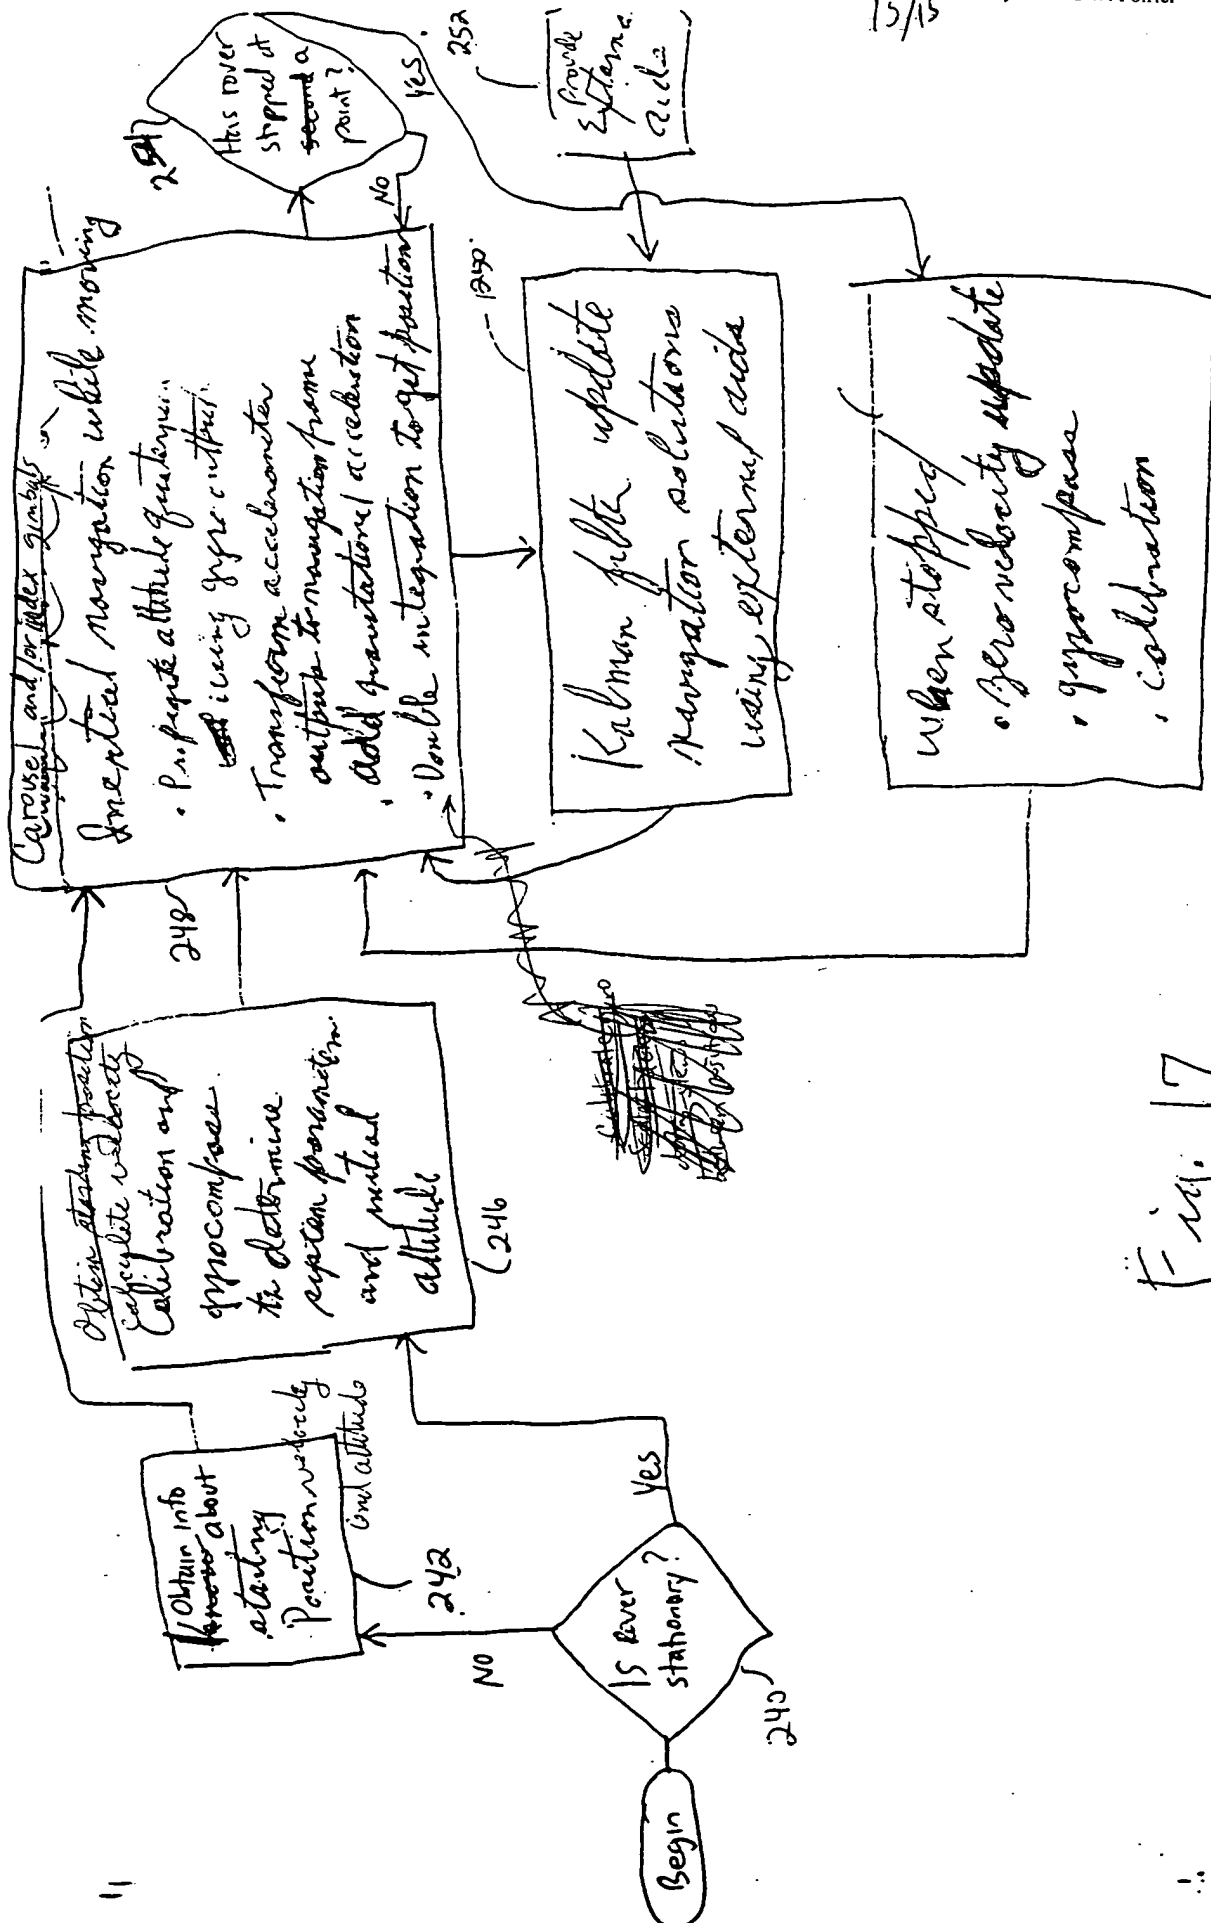 15/15
Begin
Is Rover
stationary?
240
NO
Yes
Obtain info
about
starting
Position velocity
and attitude
242
Obtain starting position
Calculate velocity
Calibration and
gyrocompass
to determine
system parameters
and initial
attitude
246
Carousel and/or index gimbals
Inertial Navigation while moving
• Propagate attitude quaternion
using gyro outputs
• Transform accelerometer
outputs to navigation frame
• add gravitational acceleration
• Double integration to get position
248
Has rover
stopped at
second a
point?
254
No
Yes
Provide
External
aids
252
Kalman filter update
navigation solutions
using external aids
250
When stopped
• Zero velocity update
• gyrocompass
• calibration
Fig. 17